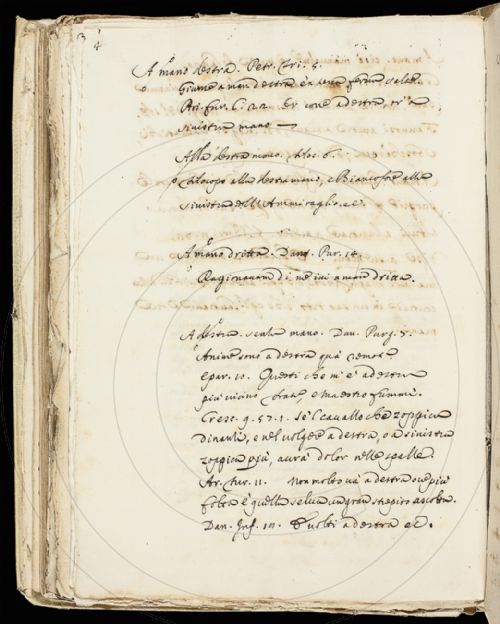 3 4
A mano destra. Petr. Tri. 5.
Giunse a man destra
Ari. fur. C. 22. Et ove a destra, et a
sinistra mano —
Alla destra mano. filoc. 6.
filocopo alla destra mano, e Biancofiore alla
sinistra dell'Ammiraglio. ec.
A mano dritta. Dant. Pur. 14.
Ragionavan di me ivi a man dritta.
A destra senza mano. Dan. Purg. 5.
Anime sono a destra qua remote
e par. 10. Questi che m'è a destra
più vicino frate, e maestro fummi.
Cresc. 9. 57. 1. se'l cavallo che zoppica
dinanzi, e nel volgere a destra, o a sinistra
zoppica più, avrà dolor nelle spalle
Ar. fur. 11. Non molto va a destra ove più
folta è quella selva un gran strepito ascolta.
Dan. Inf. 17. a destra ec.